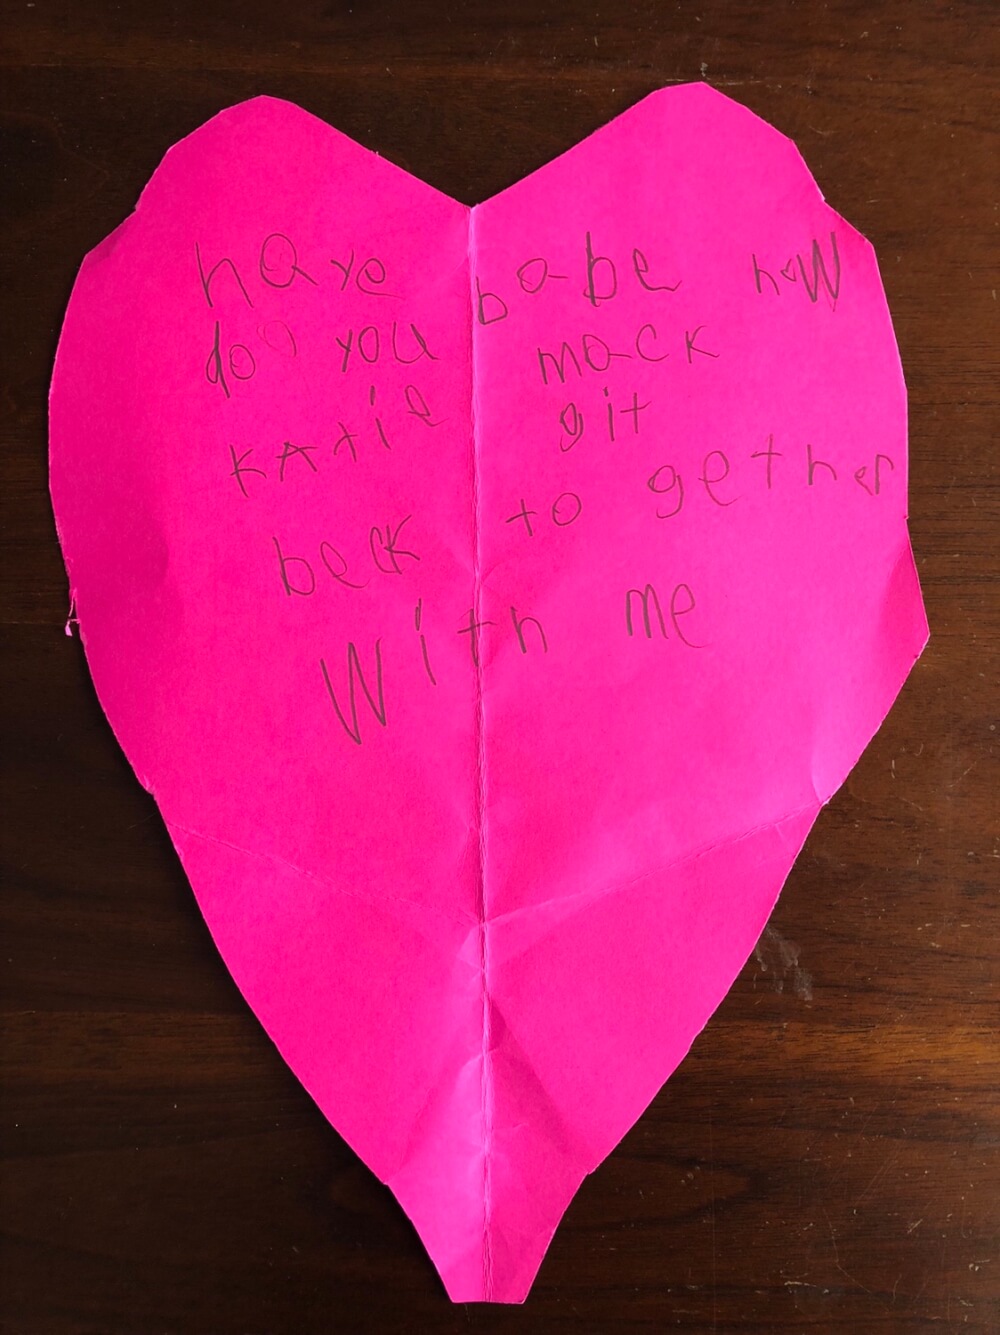 haye babe how
doo you mack
KAtie git
beck to gether
With me